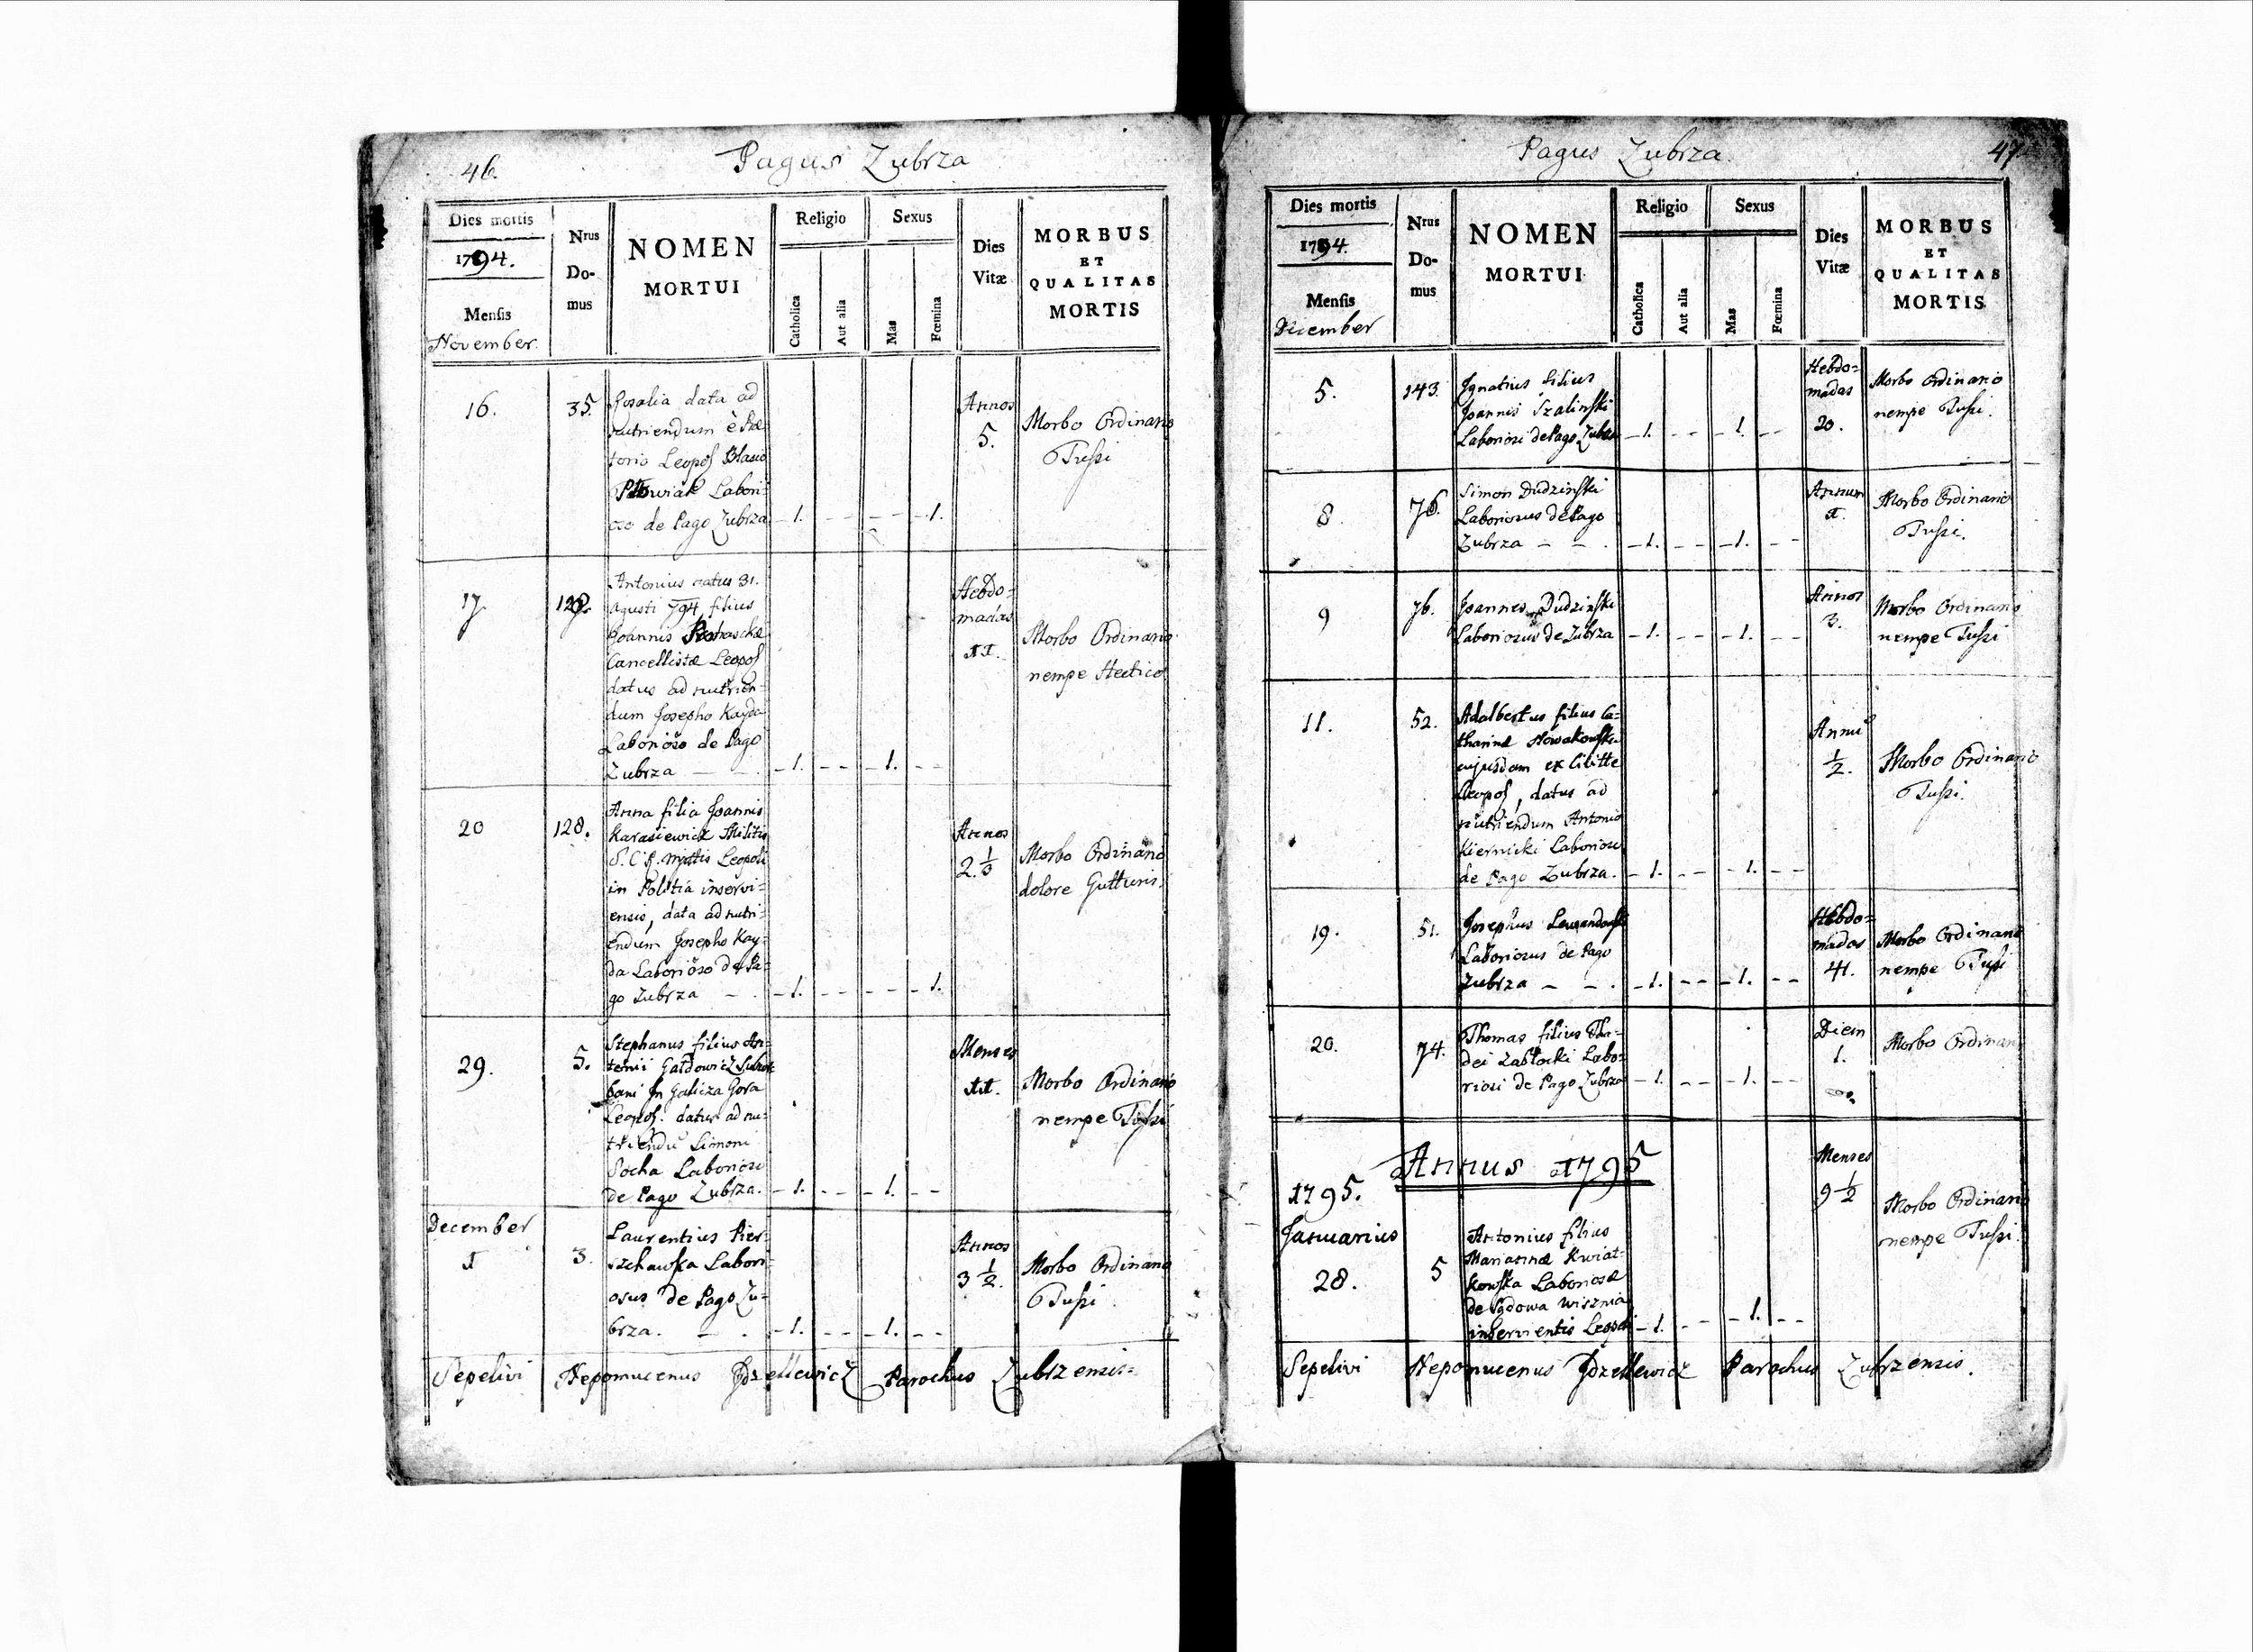 46.
Pagus Zubrza
Dies mortis
1794.
Mensis
November.
Nrus
Do-
mus
NOMEN
MORTUI
Religio
Catholica
Aut alia
Sexus
Mas
Fœmina
Dies
Vitæ
MORBUS
ET
QUALITAS
MORTIS
16.
35.
Rosalia data ad
nutriendum è
torio Leopol Blasio
Labori-
oso de Pago Zubrza
1.
1.
Annos
5.
Morbo Ordinario
Tussi
17.
Antonius natus 31.
Agusti 794 filius
Joannis
Cancellistæ Leopol
datus ad nutrien-
dum Josepho Kayda
Laborioso de Pago
Zubrza
1.
1.
Hebdo-
madas
11.
Morbo Ordinario
nempe Hectico.
20
128.
Anna filia Joannis
Karasiewicz Militis
Leopoli
in Politia inservi-
ensis, data ad nutri-
endum Josepho Kay-
da Laborioso de Pa-
go Zubrza
1.
1.
Annos
2.
Morbo Ordinario
dolore Gutturis.
29.
5.
Stephanus filius An-
tonii Gałdowicz Subur-
bani In Galicza Gora
Leopol. datus ad nu-
triendū Simoni
Socha Laborioso
de Pago Zubrza.
1.
1.
Menses
11.
Morbo Ordinario
nempe Tussi
December
1
3.
Laurentius Pier-
szchawka Labori-
osus de Pago Zu-
brza.
1.
1.
Annos
3 1/2.
Morbo Ordinario
Tussi.
Sepelivi Nepomucenus Jdzellewicz Parochus Zubrzensis.
Pagus Zubrza.
47.
Dies mortis
1794.
Mensis
December
Nrus
Do-
mus
NOMEN
MORTUI
Religio
Catholica
Aut alia
Sexus
Mas
Fœmina
Dies
Vitæ
MORBUS
ET
QUALITAS
MORTIS
5.
143.
Ignatius filius
Joannis Szalinski
Laboriosi de Pago Zubrza
1.
1.
Hebdo-
madas
20.
Morbo Ordinario
nempe Tussi.
8.
76.
Simon Dudzinski
Laboriosus de Pago
Zubrza
1.
1.
Annum
1.
Morbo Ordinario
Tussi.
9
76.
Joannes Dudzinski
Laboriosus de Zubrza
1.
1.
Annos
3.
Morbo Ordinario
nempe Tussi
11.
52.
Adalbertus filius Ca-
tharinæ Nowakowska
cujusdam ex Civitte
Leopol, datus ad
nutriendum Antonio
Kiernicki Laborioso
de Pago Zubrza.
1.
1.
Anni
1/2.
Morbo Ordinario
Tussi.
19.
51.
Josephus Lewandowski
Laboriosus de Pago
Zubrza
1.
1.
Hebdo-
madas
41.
Morbo Ordinario
nempe Tussi
20.
74.
Thomas filius Tha-
dei Zabłocki Labo-
riosi de Pago Zubrza
1.
1.
Diem
1.
Morbo Ordinario
Annus 1795
1795.
Januarius
28.
5
Antonius filius
Mariannæ Kwiat-
kowska Laboriosæ
de Sądowa Wisznia
inservientis Leopoli
1.
1.
Menses
9 1/2
Morbo Ordinario
nempe Tussi.
Sepelivi Nepomucenus Jdzellewicz Parochus Zubrzensis.